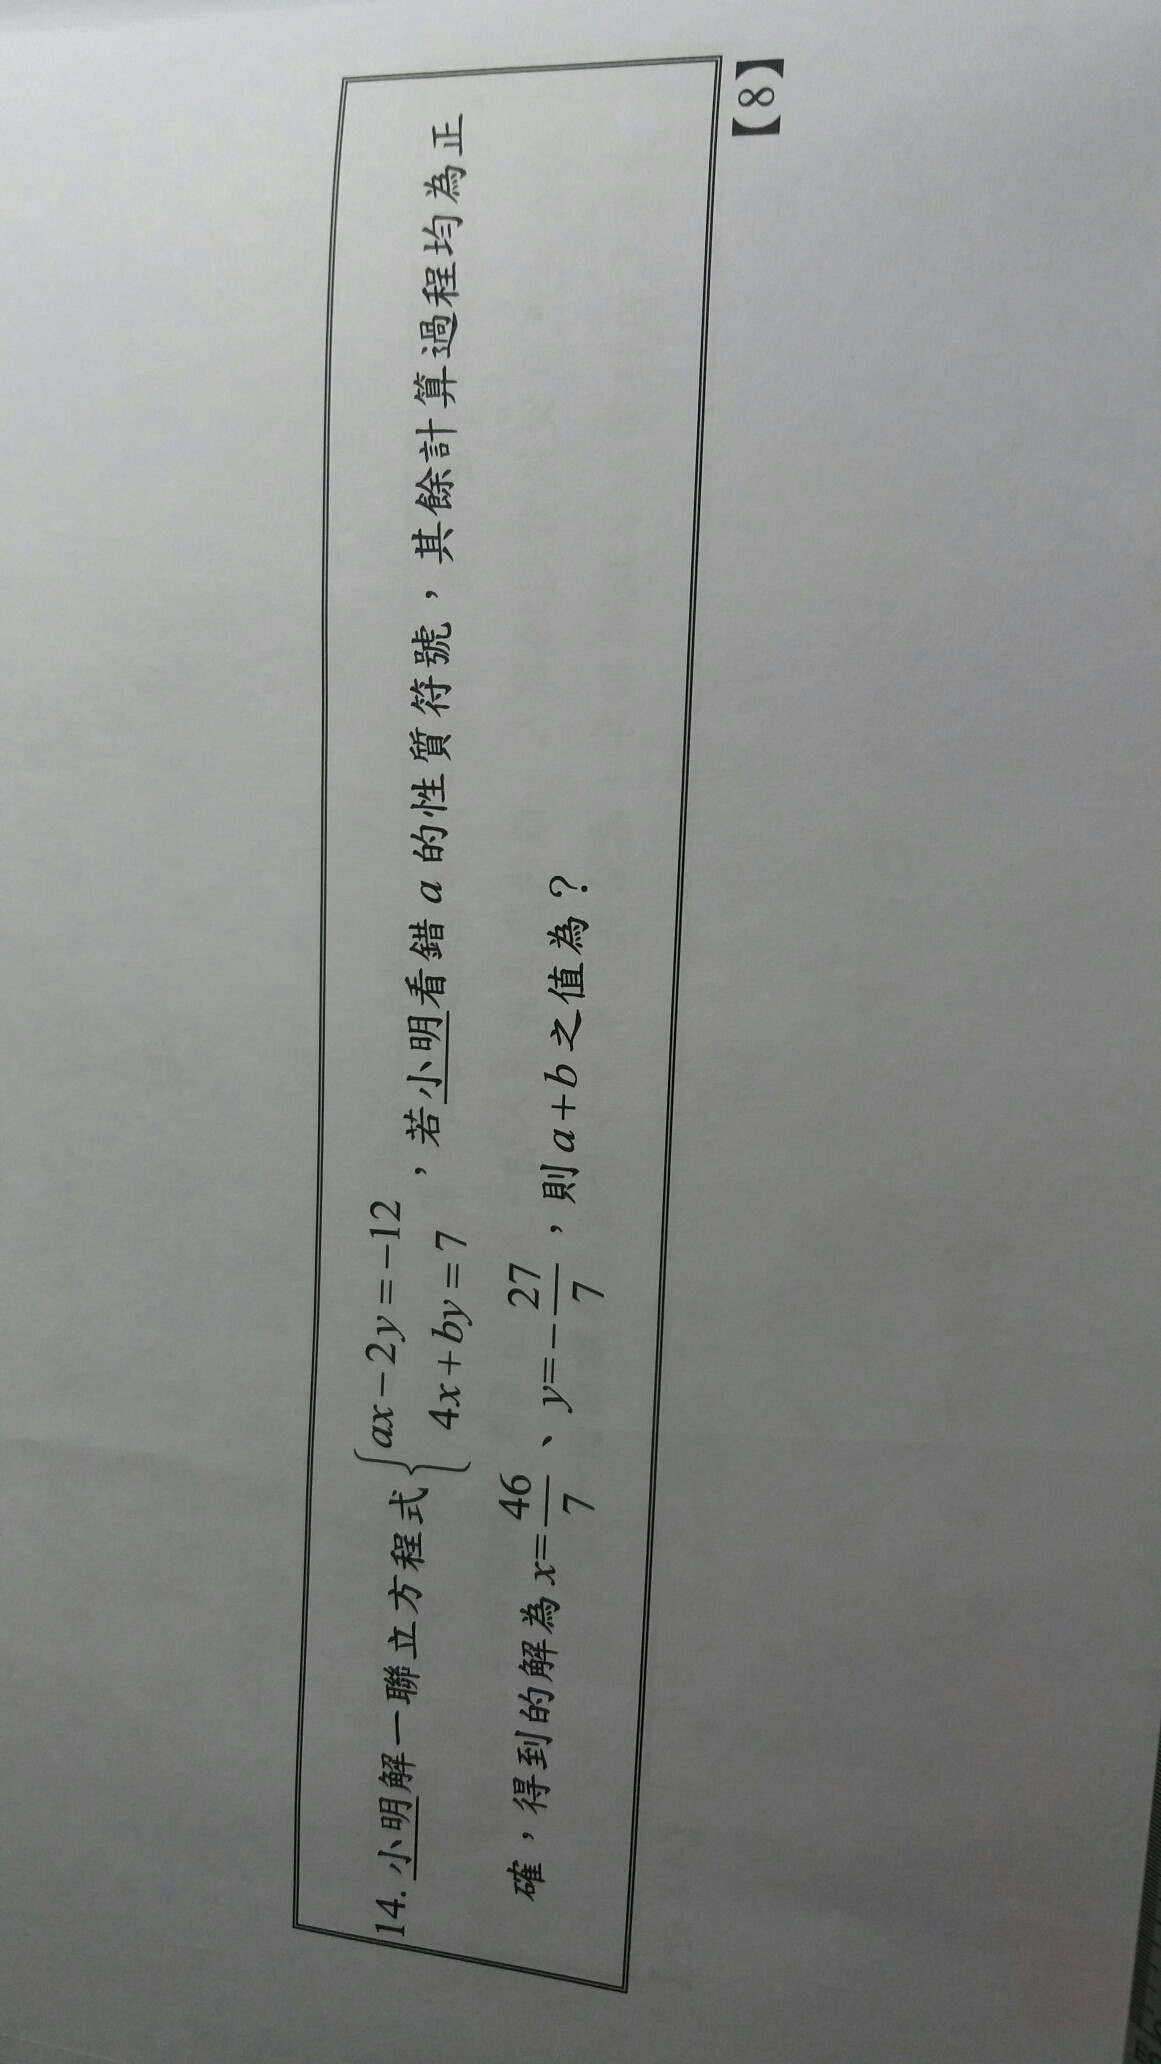 14. 小明解一聯立方程式{ax－2y＝－12
4x＋by＝7，若小明看錯 a 的性質符號，其餘計算過程均為正
確，得到的解為 x＝46/7、y＝－27/7，則 a＋b 之值為？
【8】